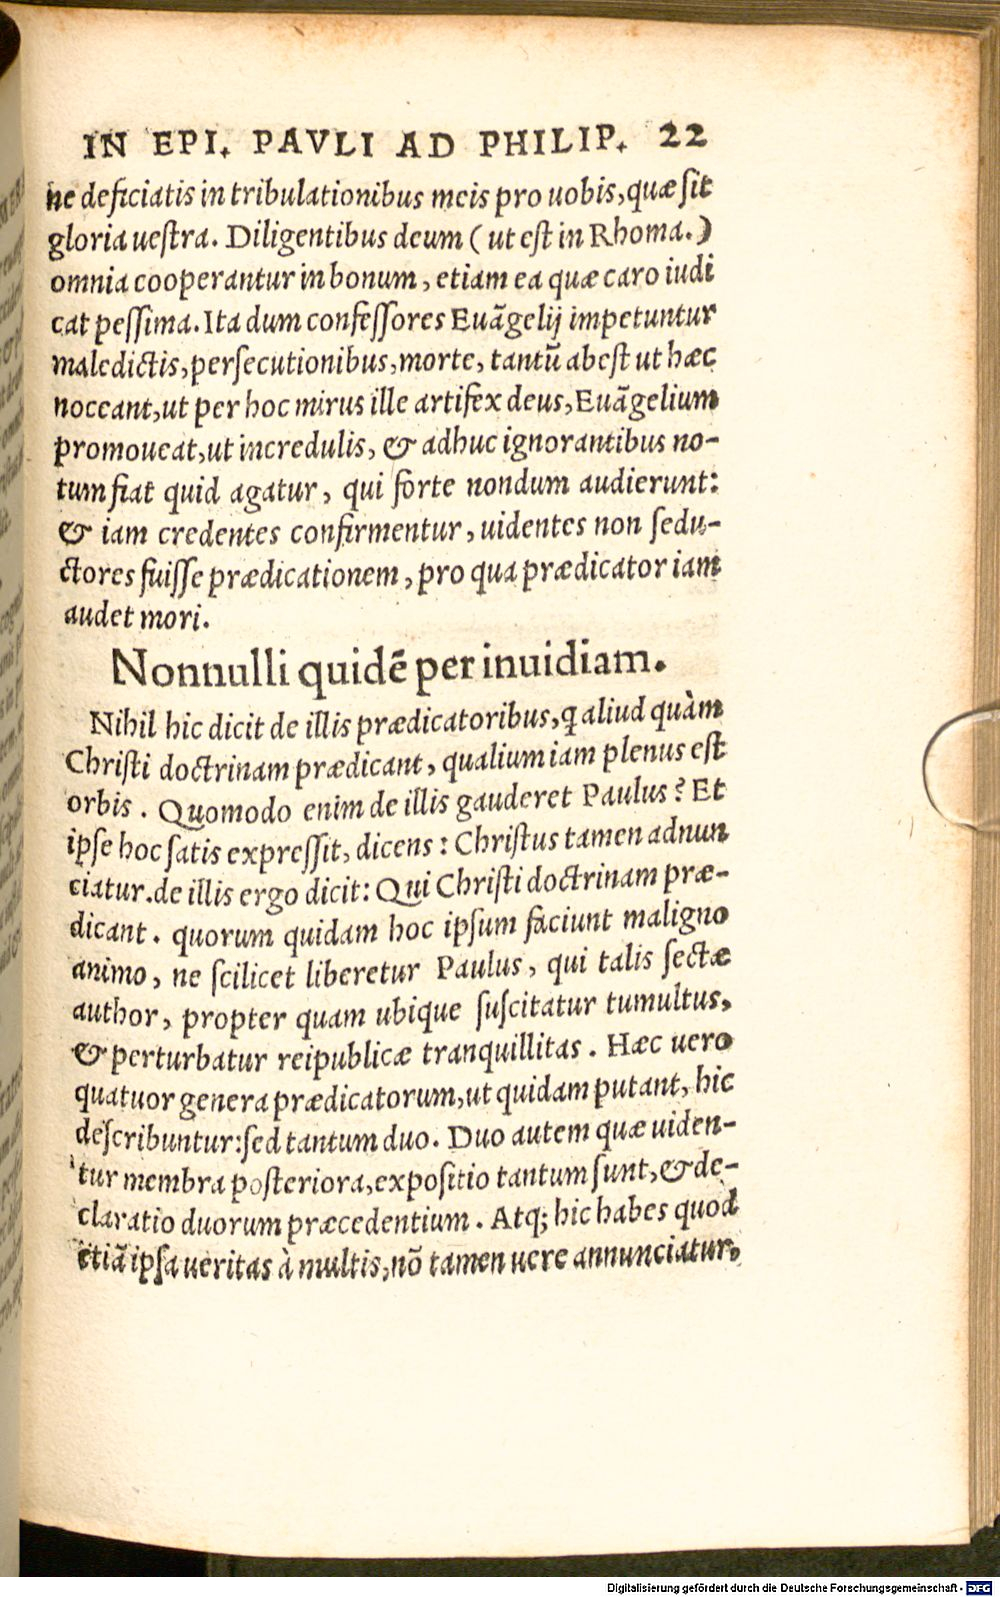 IN EPI. PAVLI AD PHILIP. 22
ne deficiatis in tribulationibus meis pro uobis, quæ sit
gloria uestra. Diligentibus deum (ut est in Rhoma.)
omnia cooperantur in bonum, etiam ea quæ caro iudi
cat pessima. Ita dum confessores Euãgelij impetuntur
maledictis, persecutionibus, morte, tantũ abest ut hæc
noceant, ut per hoc mirus ille artifex deus, Euãgelium
promoueat, ut incredulis, & adhuc ignorantibus no-
tum fiat quid agatur, qui forte nondum audierunt:
& iam credentes confirmentur, uidentes non sedu-
ctores fuisse prædicationem, pro qua prædicator iam
audet mori.
Nonnulli quidẽ per inuidiam.
Nihil hic dicit de illis prædicatoribus, q aliud quàm
Christi doctrinam prædicant, qualium iam plenus est
orbis. Quomodo enim de illis gauderet Paulus? Et
ipse hoc satis expressit, dicens: Christus tamen adnun
ciatur. de illis ergo dicit: Qui Christi doctrinam præ-
dicant. quorum quidam hoc ipsum faciunt maligno
animo, ne scilicet liberetur Paulus, qui talis sectæ
author, propter quam ubique suscitatur tumultus,
& perturbatur reipublicæ tranquillitas. Hæc uero
quatuor genera prædicatorum, ut quidam putant, hic
describuntur: sed tantum duo. Duo autem quæ uiden-
tur membra posteriora, expositio tantum sunt, & de-
claratio duorum præcedentium. Atq; hic habes quod
etiã ipsa ueritas à multis, nõ tamen uere annunciatur.
Digitalisierung gefördert durch die Deutsche Forschungsgemeinschaft - DFG